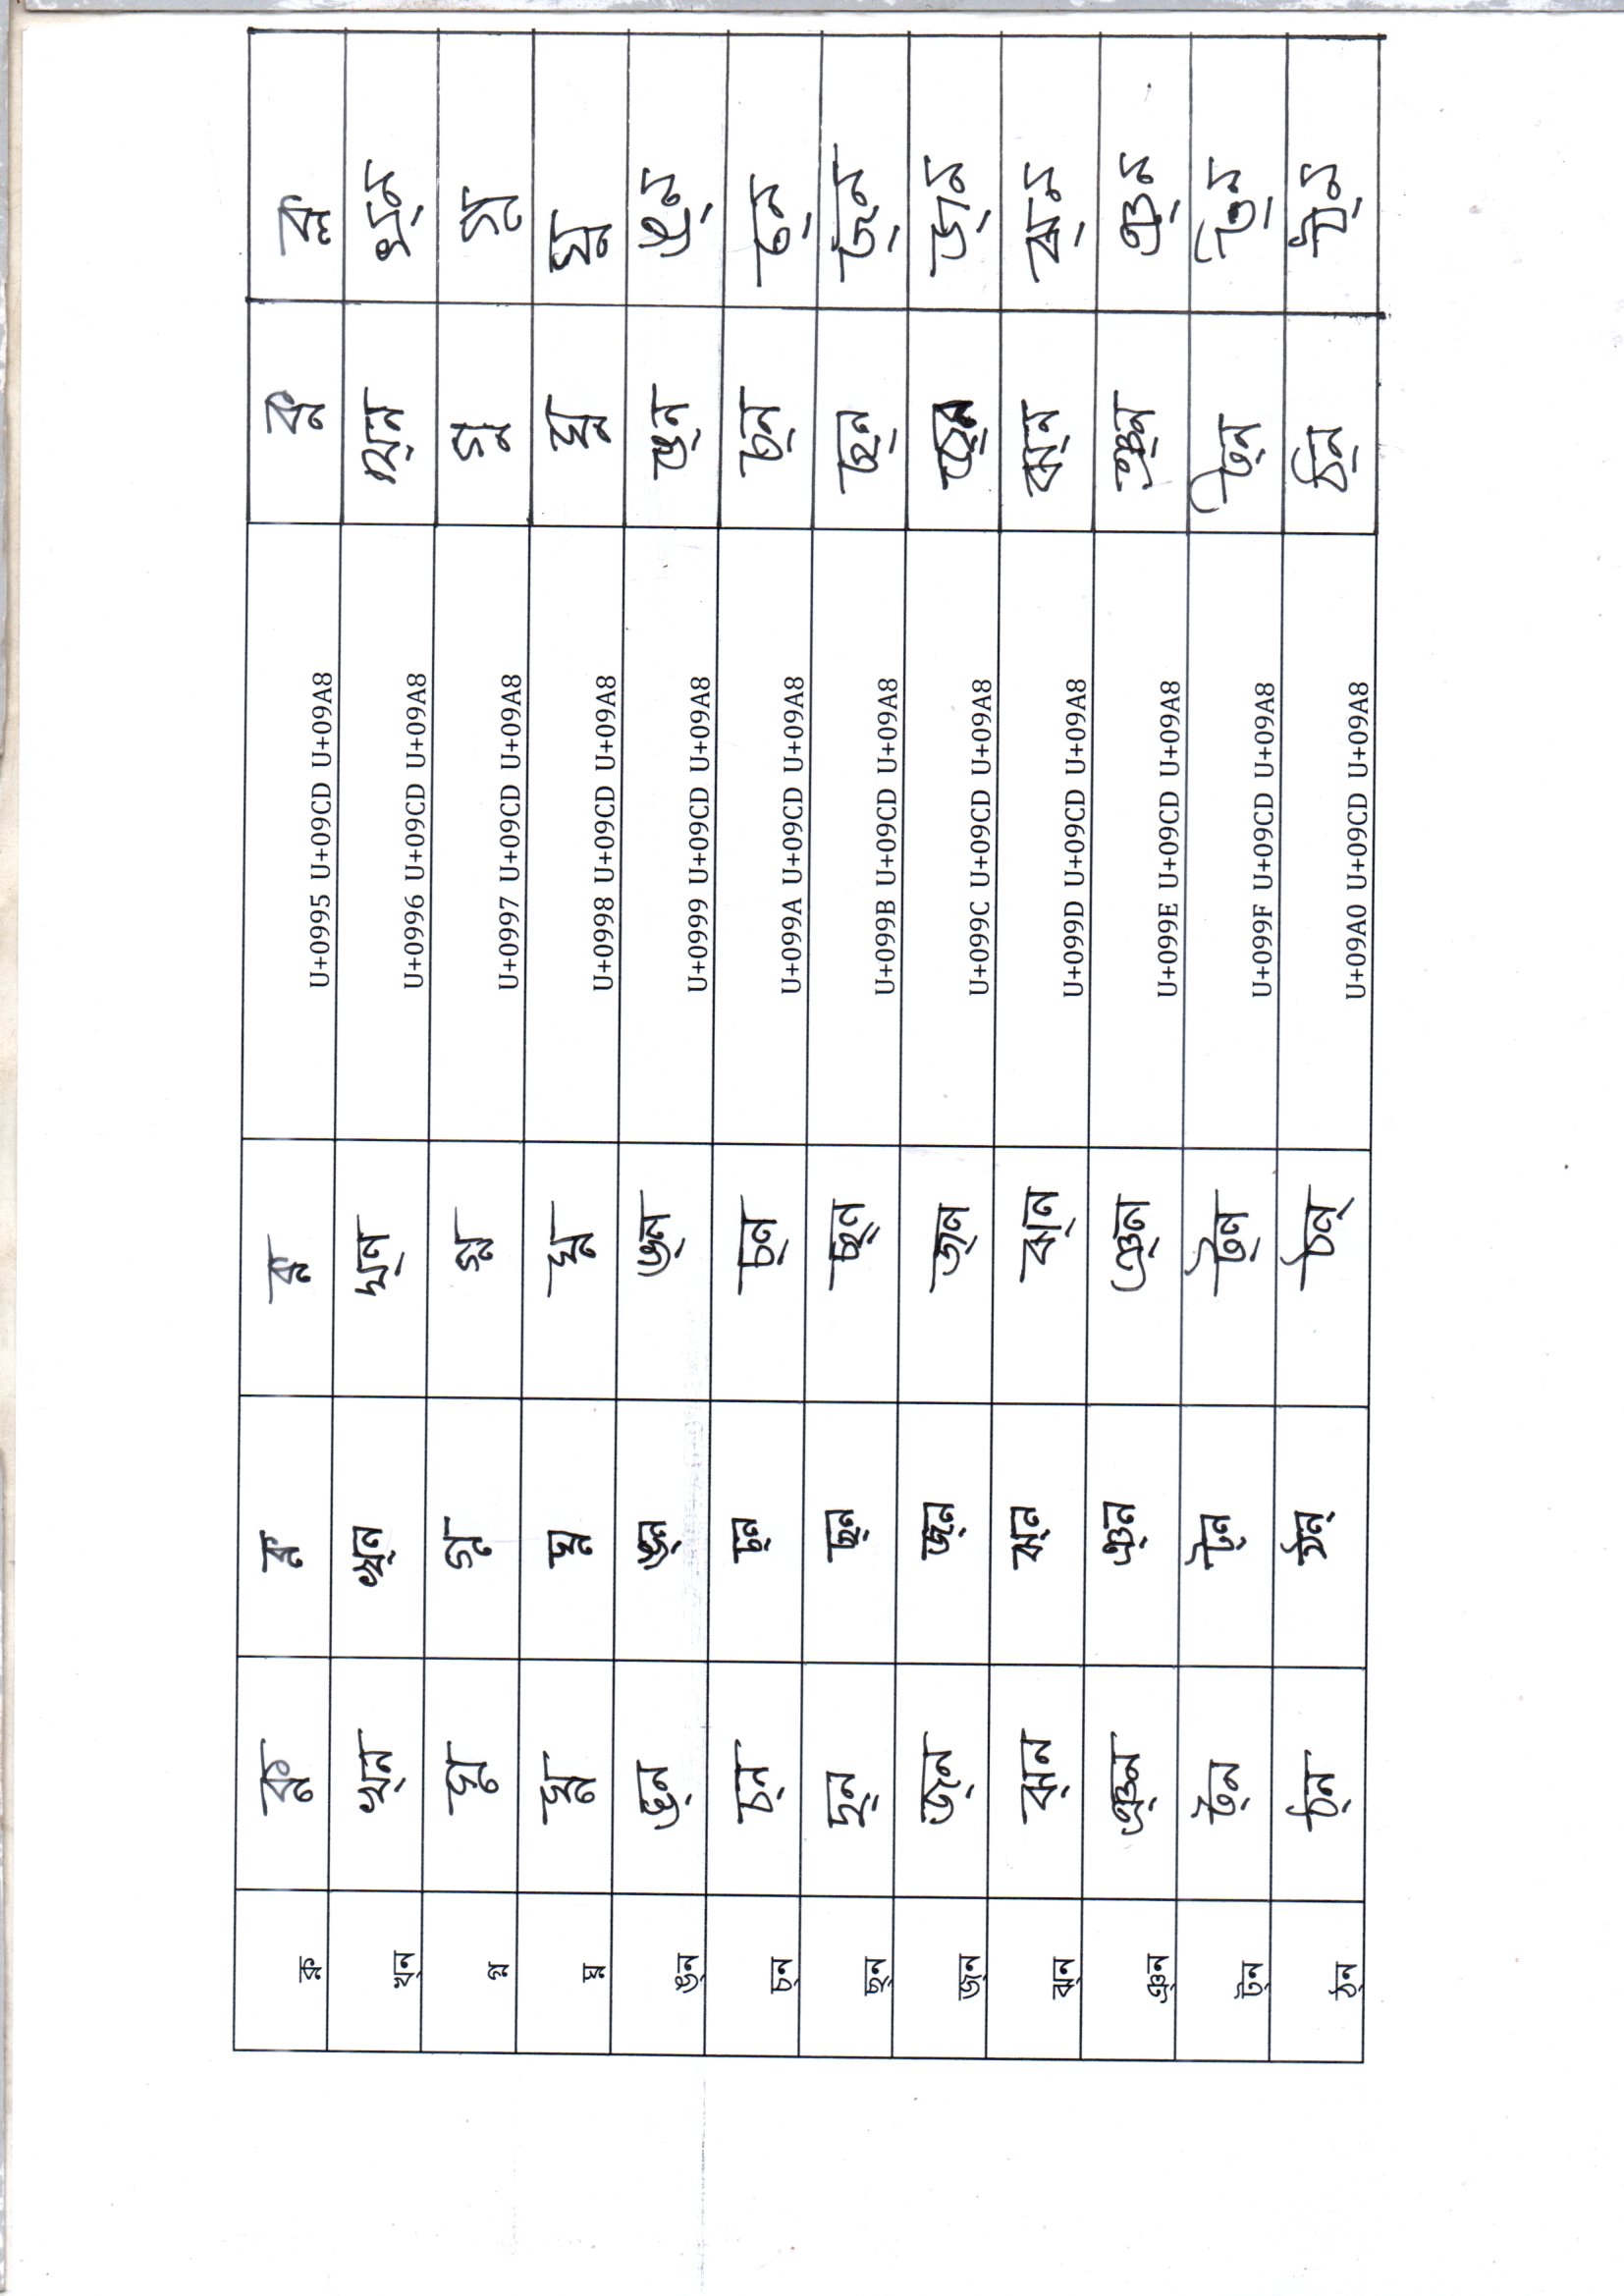 ক্ন ক্ন ক্ন ক্ন U+0995 U+09CD U+09A8 ক্ন ক্ল
খ্ন খ্ন খ্ন খ্ন U+0996 U+09CD U+09A8 খ্ন খ্ন
গ্ন গ্ন গ্ন গ্ন U+0997 U+09CD U+09A8 গ্ন গ্ন
ঘ্ন ঘ্ন ঘ্ন ঘ্ন U+0998 U+09CD U+09A8 ঘ্ন ঘ্ন
ঙ্ন ঙ্ন ঙ্ন ঙ্ন U+0999 U+09CD U+09A8 ঙ্ন ঙ্ন
চ্ন চ্ন চ্ন চ্ন U+099A U+09CD U+09A8 চ্ন চ্ন
ছ্ন ছ্ন ছ্ন ছ্ন U+099B U+09CD U+09A8 ছ্ন জ্ন
জ্ন জ্ন জ্ন জ্ন U+099C U+09CD U+09A8 জ্ন
ঝ্ন ঝ্ন ঝ্ন ঝ্ন U+099D U+09CD U+09A8 ঝ্ন ঝ্ন
ঞ্ন ঞ্ন ঞ্ন ঞ্ন U+099E U+09CD U+09A8 ঞ্ন ঞ্ন
ট্ন ট্ন ট্ন ট্ন U+099F U+09CD U+09A8 ট্ন ট্ন
ঠ্ন ঠ্ন ঠন্ ঠন্ U+09A0 U+09CD U+09A8 ঠ্ন ঠ্ন